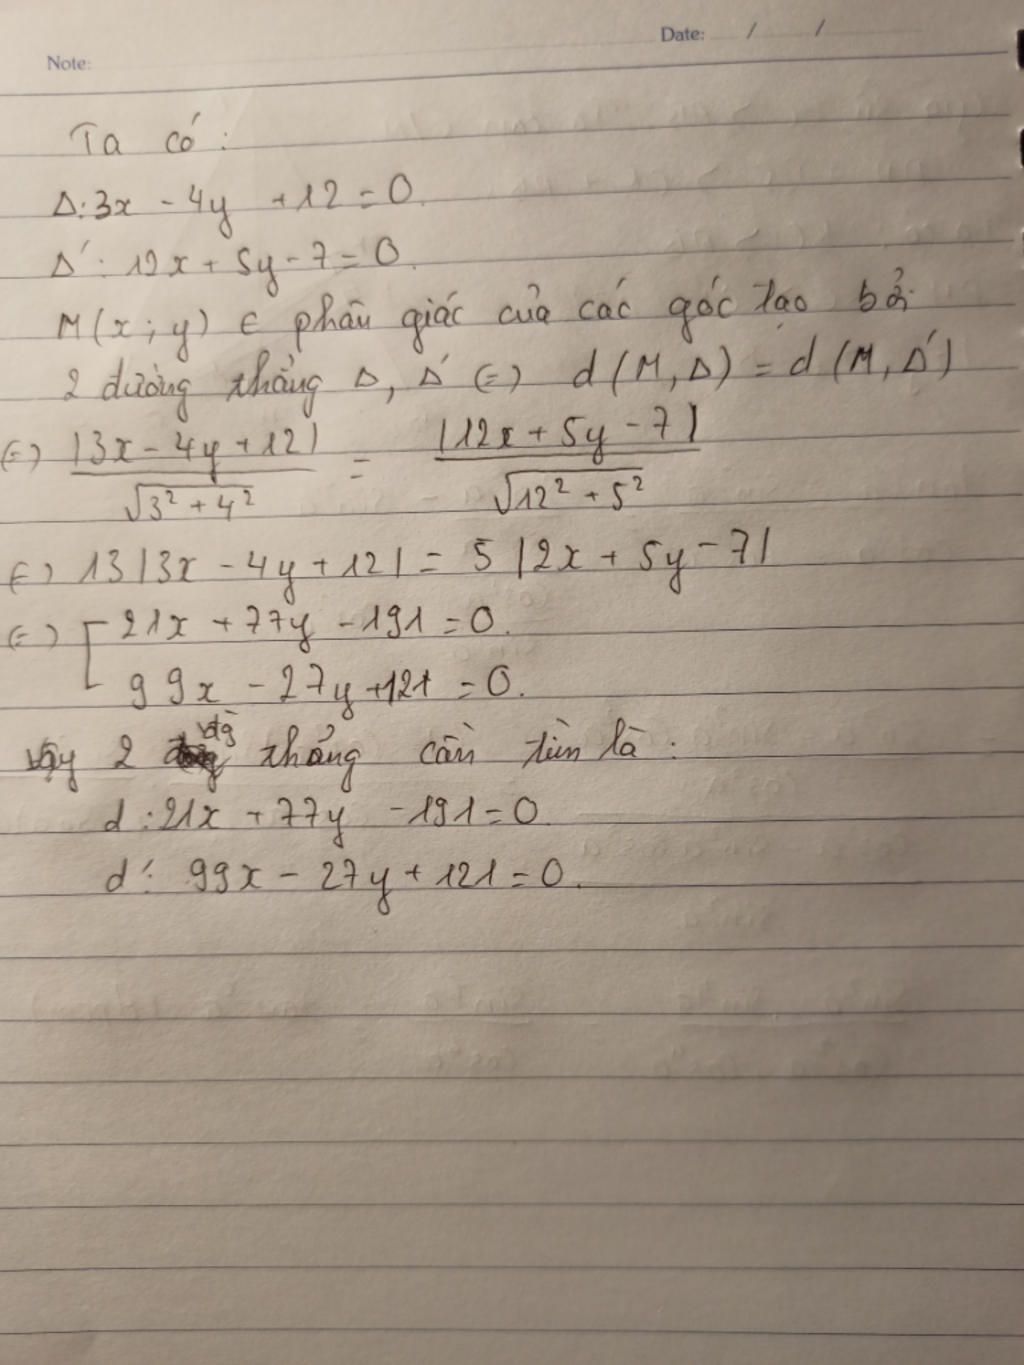 Date: / /
Note:
Ta có:
Δ: 3x - 4y + 12 = 0.
Δ': 12x + 5y - 7 = 0.
M(x; y) ∈ phân giác của các góc tạo bởi
2 đường thẳng Δ, Δ' (=) d(M, Δ) = d(M, Δ')
(=) |3x - 4y + 12| / √3² + 4² = |12x + 5y - 7| / √12² + 5²
(=) 13|3x - 4y + 12| = 5|2x + 5y - 7|
(=) [ 21x + 77y - 191 = 0.
99x - 27y + 121 = 0.
Vậy 2 đg thẳng cần tìm là:
d: 21x + 77y - 191 = 0.
d': 99x - 27y + 121 = 0.